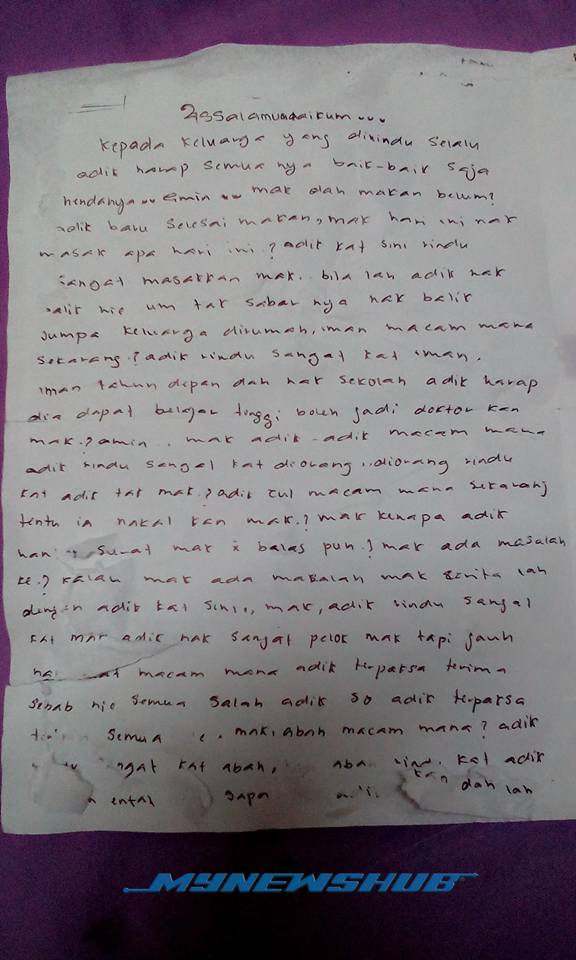 Assalamualaikum...
kepada keluarga yang dirindu selalu
adik harap semua nya baik-baik saja
hendanya.. Emin .. mak dah makan belum?
adik baru selesai makan, mak hari ini nak
masak apa hari ini.? adik kat sini rindu
sangat masakkan mak. bila lah adik nak
balik nie um tak sabar nya nak balik
jumpa keluarga dirumah, iman macam mana
sekarang.? adik rindu sangat kat iman.
iman tahun depan dah nak sekolah adik harap
dia dapat belajar tinggi boleh jadi doktor kan
mak.? amin . mak adik-adik macam mana
adik rindu sangat kat diorang ..diorang rindu
kat adik tak mak.? adik cul macam mana sekarang
tentu ia nakal kan mak.? mak kenapa adik
surat mak x balas pun.? mak ada masalah
ke.? kalau mak ada masalah mak cerita lah
dengan adik kat sini.. mak, adik rindu sangat
kat mak adik nak sangat pelok mak tapi jauh
macam mana adik terpaksa terima
sebab nie semua salah adik so adik terpaksa
semua mak, abah macam mana? adik
kat abah, kat adik
sapa kan dah lah
MYNEWSHUB